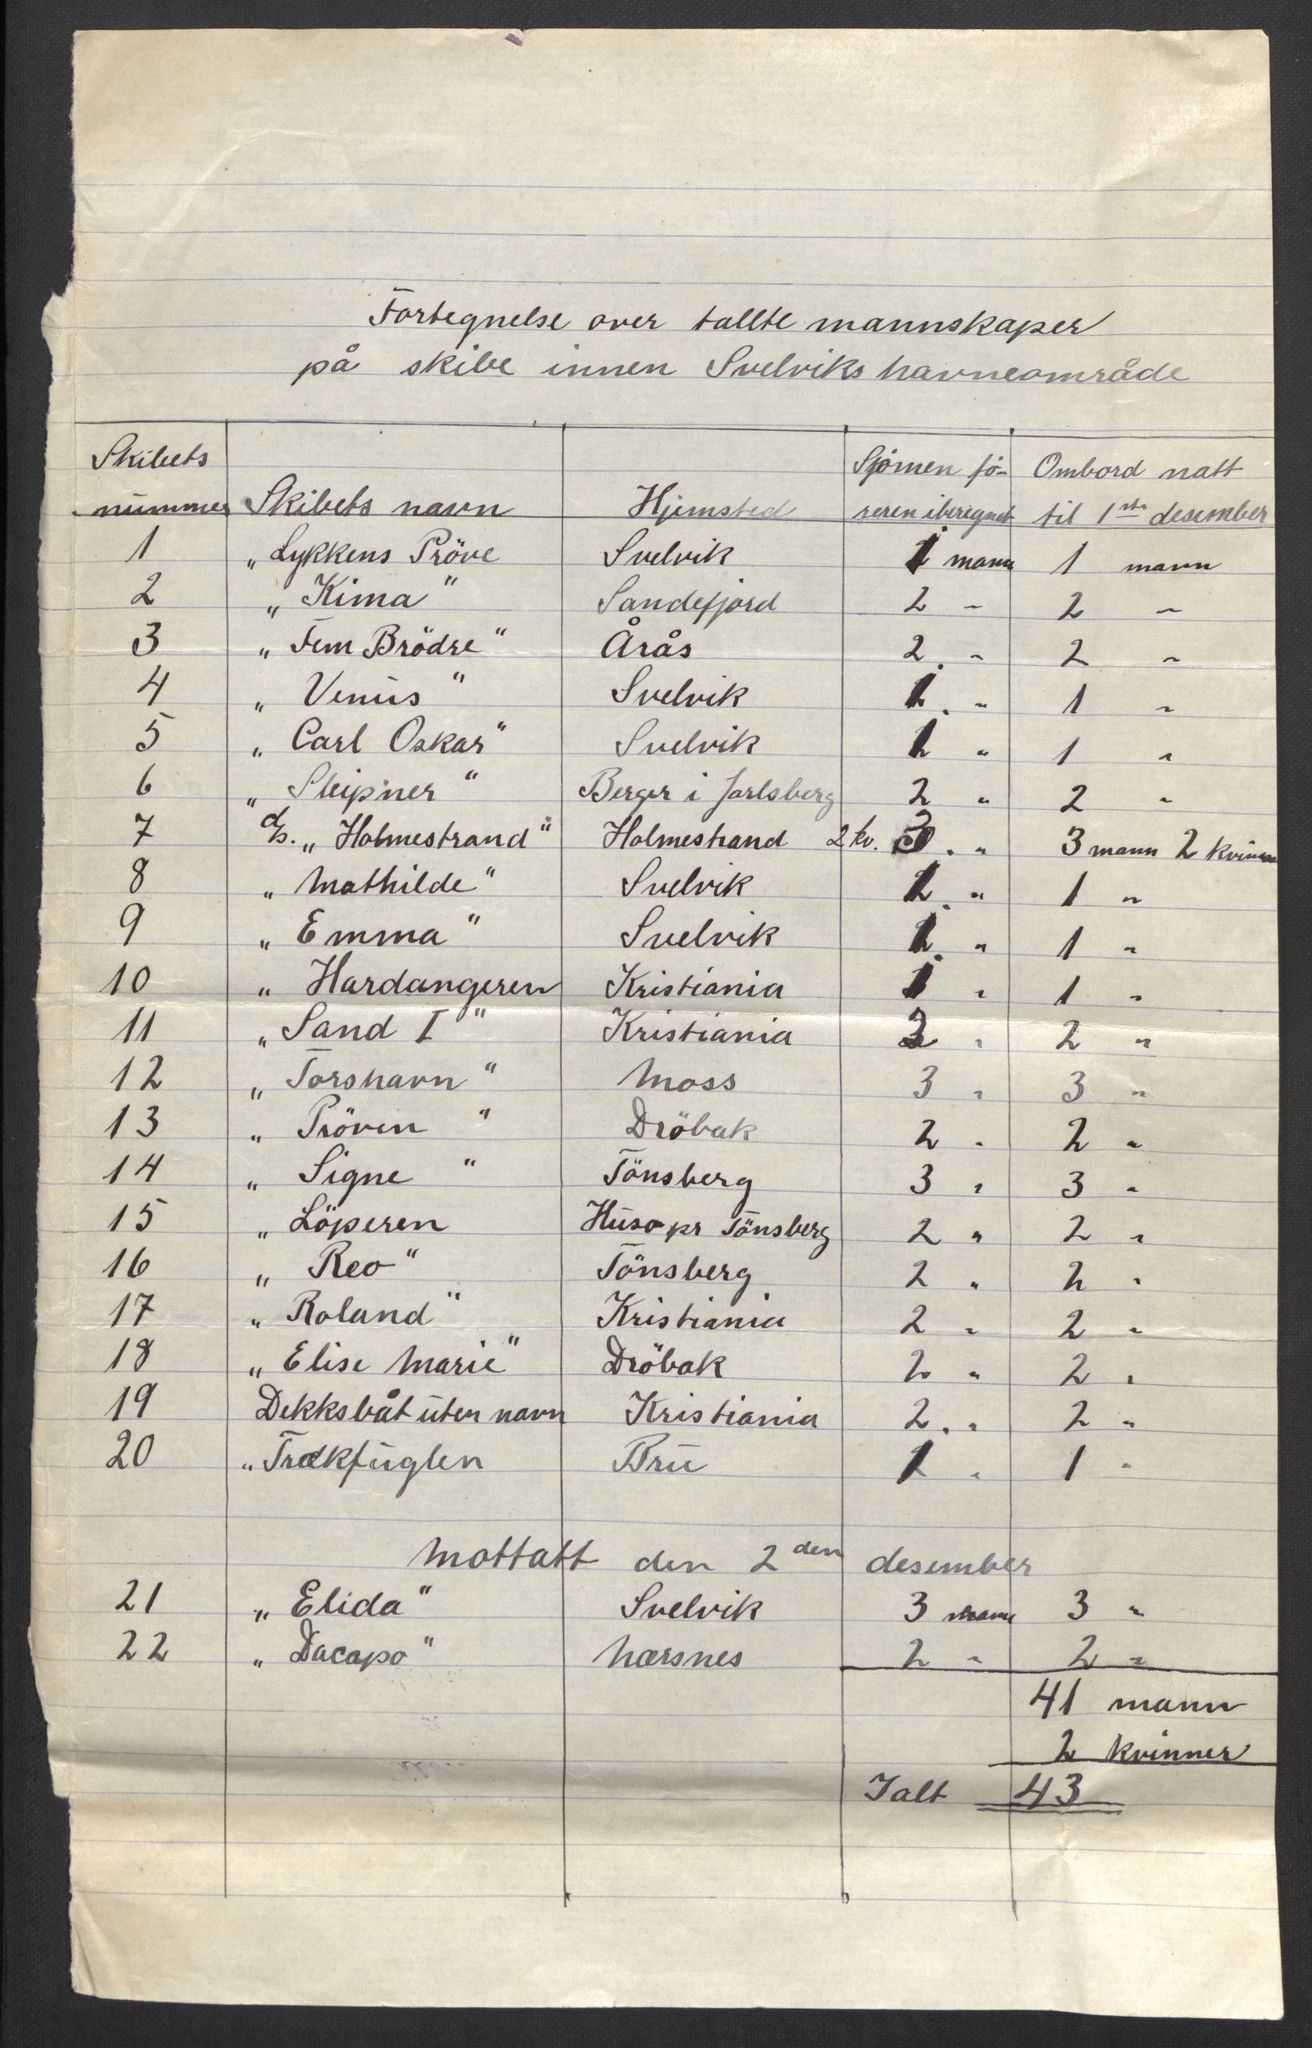 Fortegnelse over tallte mannskaper
på skibe innen Svelviks havneområde
Skibets nummer Skibets navn Hjemsted Sjömen fö-reren iberegnet Ombord natt til 1ste desember
1 „Lykkens Pröve Svelvik 1 mann 1 mann
2 „Kima" Sandefjord 2 " 2 "
3 „Fem Brödre" Årås 2 " 2 "
4 „Venus" Svelvik 1 " 1 "
5 „Carl Oskar" Svelvik 1 " 1 "
6 „Sleipner" Berger i Jarlsberg 2 " 2 "
7 d/s. „Holmestrand" Holmestrand 2 kv. 3 " 3 mann 2 kvinner
8 „Mathilde" Svelvik 1 " 1 "
9 „Emma" Svelvik 1 " 1 "
10 „Hardangeren Kristiania 1 " 1 "
11 „Sand I" Kristiania 2 " 2 "
12 „Torshavn" Moss 3 " 3 "
13 „Pröven" Dröbak 2 " 2 "
14 „Signe" Tönsberg 3 " 3 "
15 „Löperen Husö pr Tönsberg 2 " 2 "
16 „Reo" Tönsberg 2 " 2 "
17 „Roland" Kristiania 2 " 2 "
18 „Elise Marie" Dröbak 2 " 2 "
19 Dekksbåt uten navn Kristiania 2 " 2 "
20 „Trækfuglen Bru 1 " 1 "
Mottatt den 2den desember
21 „Elida" Svelvik 3 mann 3 "
22 „Dacapo" Nærsnes 2 " 2 "
41 mann
2 kvinner
Ialt 43